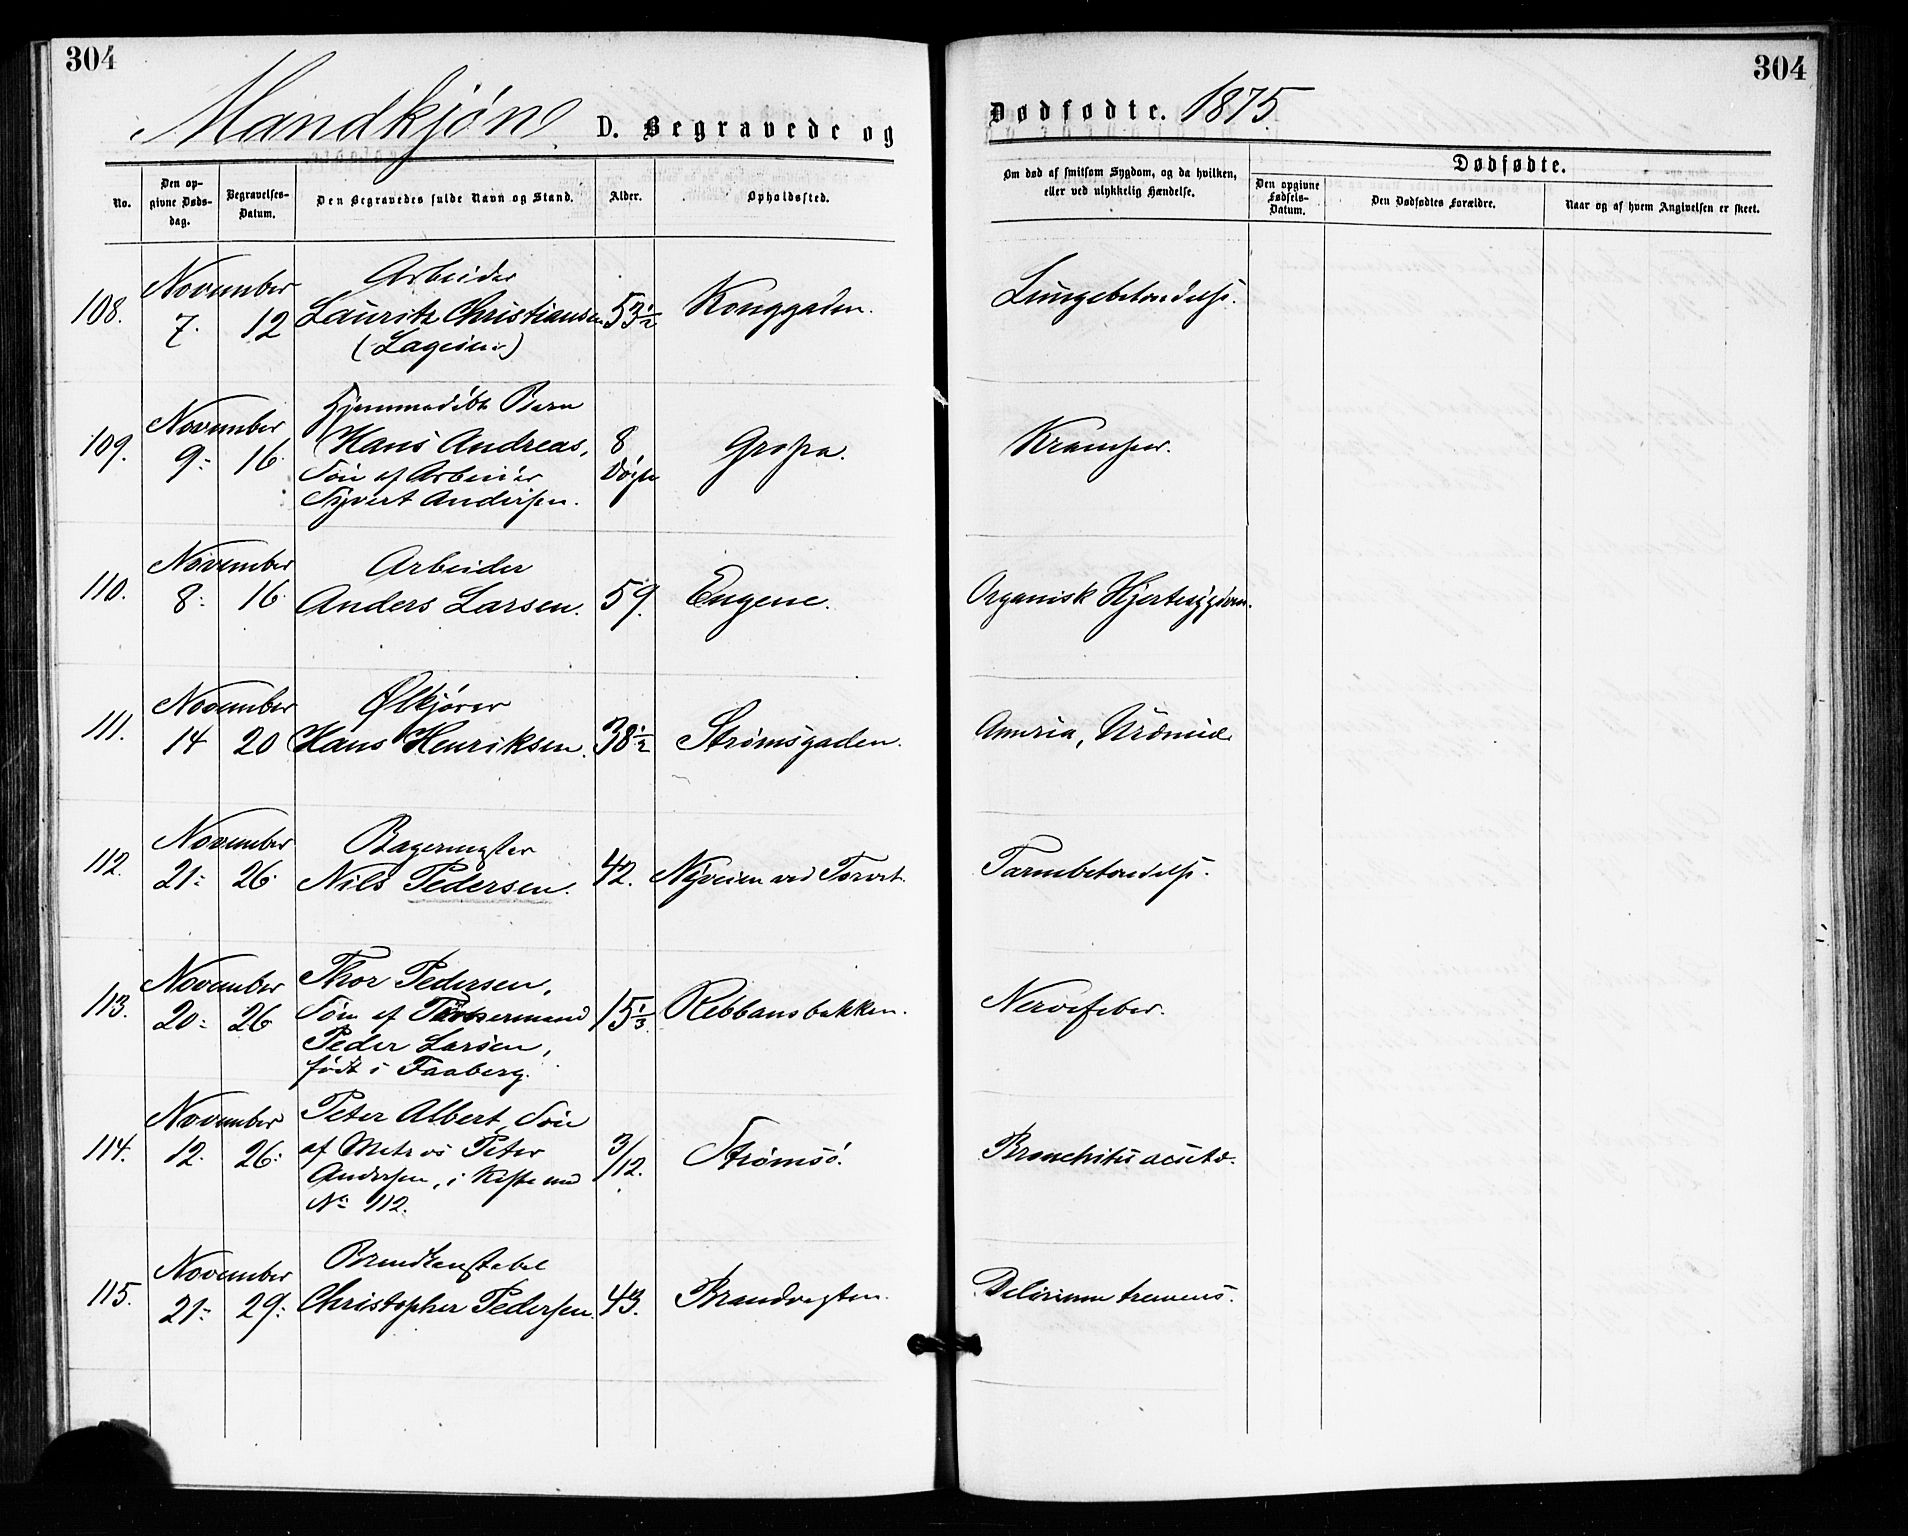 304
304
Mandkjøn. D. Begravede og Dødfødte. 1875.
No. Den opgivne Dødsdag. Begravelses-Datum. Den Begravedes fulde Navn og Stand. Alder. Opholdssted. Om død af smitsom Sygdom, og da hvilken, eller ved ulykkelig Hændelse. Dødfødte.
Den opgivne Fødsels-Datum. Den Dødfødtes Forældre. Naar og af hvem Angivelsen er skeet.
November Arbeider
108. 7. 12 Lauritz Christiansen 53½ Konggaden. Lungebetændelse.
Hjemmedöbt Barn
November
109. 9- 16. Hans Andreas, 8 Døgn Gropa. Kramper.
Sön af Arbeider
Syvert Andersen.
November Arbeider
110. 8- 16. Anders Larsen. 59. Engene. Organisk Hjertesygdom.
November Ølkjører
111. 14 20 Hans Henriksen. 38½ Strømsgaden. Uræmie
November Bagermester
112. 21- 26. Nils Pedersen. 42. Nyveien ved Torvet. Tarmbetændelse.
November Thor Pedersen,
113. 20- 26 Sön af 15⅓ Rebbansbakken. Nervefeber.
Peder Larsen,
født i Faaberg.
November Peter Albert, Sön
114. 12. 26- af Matros Peter 3/12. Strømsö. Bronchitis acuta.
Andersen, i Kiste med
No 112.
November Brandkonstabel
115. 21- 29- Christopher Pedersen. 43. Brandvagten. Delirium tremens.